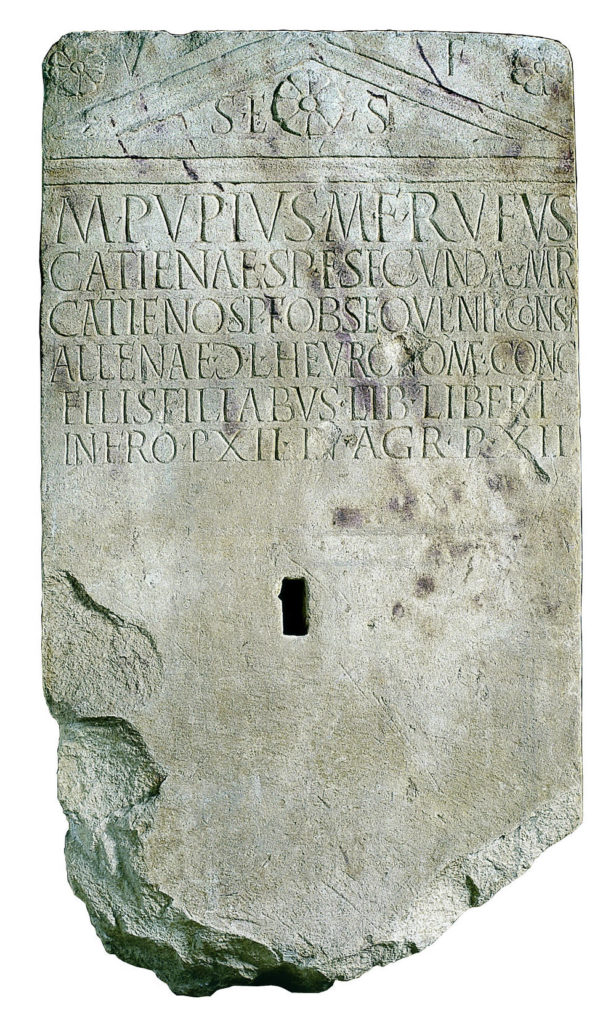 V F
S·E·S
M·PVPIVS·M·F·RVFVS
CATIENAE·SP·F·SECVNDAE·MR
CATIENO·SP·F·OBSEQVENTI·CONSA
ALLENAE·Ɔ·L·CONC
FILIS·FILIABVS·LIB·LIBERT
IN·FRO·P·XII·IN·AGR·P·XII